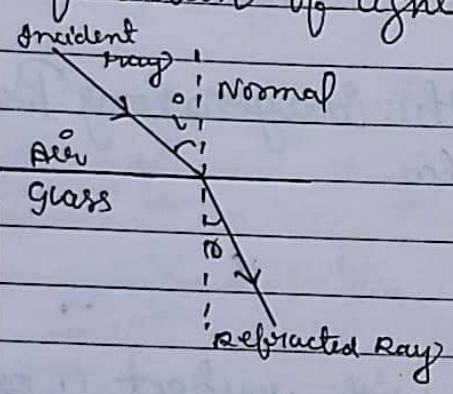 of light
Incident
ray
Normal
i
Air
Glass
r
Refracted Ray